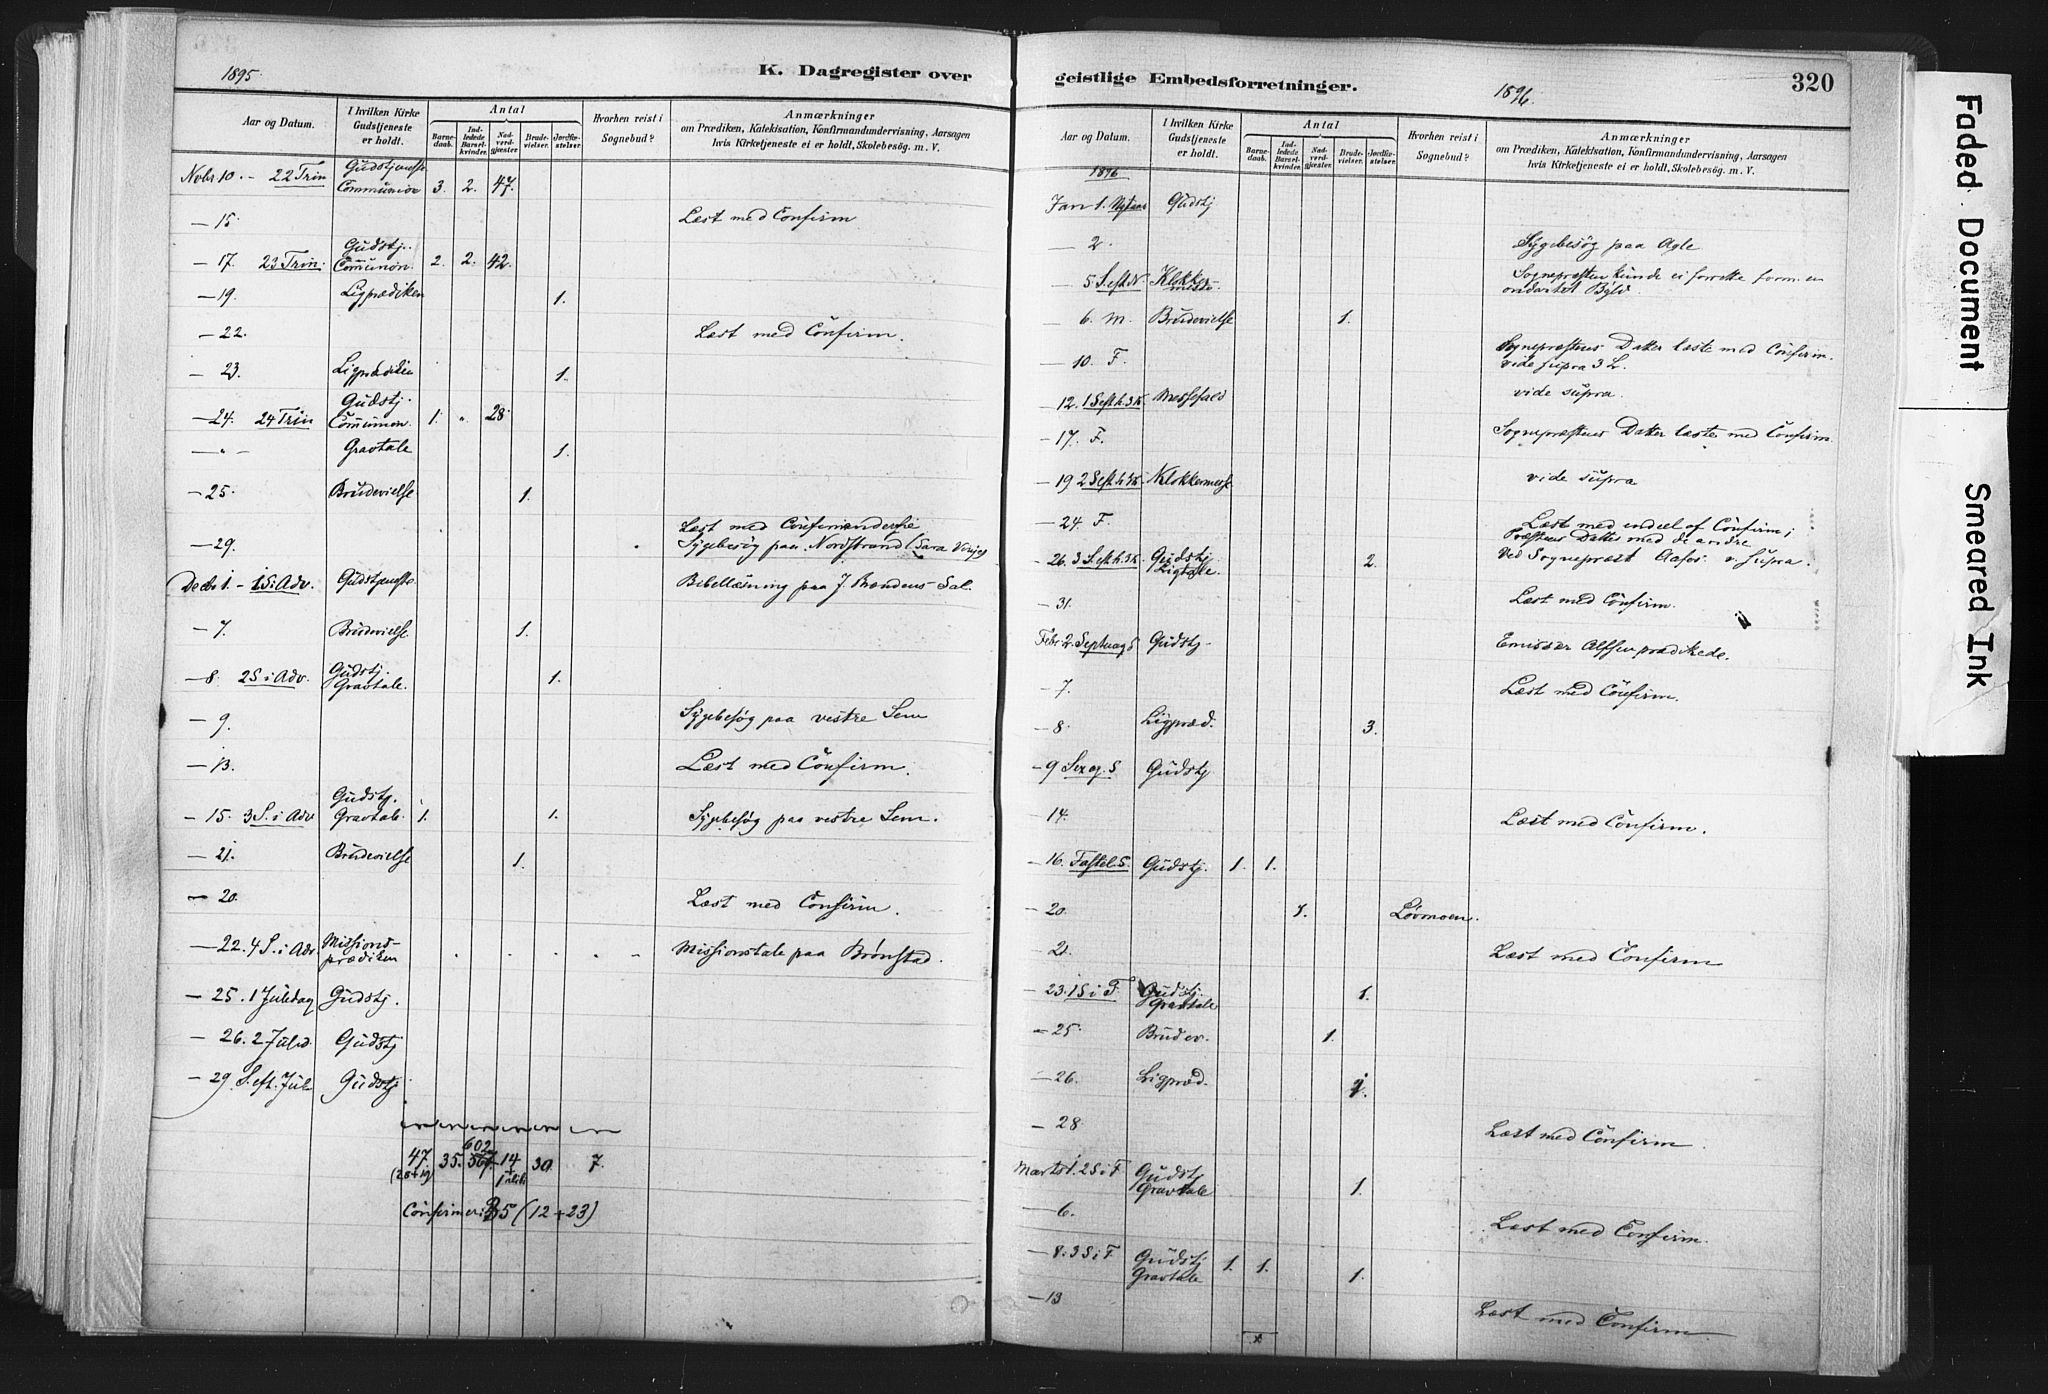 1895.
K. Dagregister over
Aar og Datum.
I hvilken Kirke Gudstjeneste er holdt.
Antal
Barne-daab.
Ind-ledede Barsel-kvinder.
Nad-verd-gjæster.
Brude-vielser.
Jordfæ-stelser.
Hvorhen reist i Sognebud?
Anmærkninger
om Prædiken, Katekisation, Konfirmandundervisning, Aarsagen
hvis Kirketjeneste ei er holdt, Skolebesøg. m. V.
Novbr 10. - 22 Trin Gudstjeneste Communion 3. 2. 47.
— 15. Læst med Confirm
— 17. 23 Trin. Gudstj. Communion. 2. 2. 42.
— 19. Ligprædiken 1.
— 22. Læst med Confirm.
— 23. Ligprædiken 1.
— 24. 24 Trin Gudstj. Communion. 1. " 28.
— " — Gravtale 1.
— 25. Brudevielse 1.
Læst med Confirmanderne
— 29. Sygebesøg paa Nordstrand (Sara
Decbr 1. - 1 S. i Adv. Gudstjeneste Bibellæsning paa J. Sal.
— 7. Brudevielse 1.
— 8. 2 S i Adv. Gudstj. Gravtale. 1.
— 9. Sygebesøg paa vestre Sem
— 13. Læst med Confirm.
— 15. 3 S. i Adv Gudstj. Gravtale. 1. 1. Sygebesøg paa vestre Sem.
— 21. Brudevielse 1.
— 20. Læst med Confirm.
— 22. 4 S. i Adv. Missions-prædiken Missionstale paa Brønstad.
— 25. 1 Juledag Gudstj.
— 26. 2 Juled. Gudstj
— 29. S. eft. Jul Gudstj
602
47. 35. 567. 14 30. 7.
(28+19)
Confirmeri 35 (12 + 23)
geistlige Embedsforretninger.
1896.
320
Aar og Datum.
I hvilken Kirke Gudstjeneste er holdt.
Antal
Barne-daab.
Ind-ledede Barsel-kvinder.
Nad-verd-gjester.
Brude-vielser.
Jordfæ-stelser.
Hvorhen reist i Sognebud?
Anmærkninger
om Prædiken, Katekisation, Konfirmandundervisning, Aarsagen
hvis Kirketjeneste ei er holdt, Skolebesøg. m. V.
1896
Jan 1. Nytaar Gudstj
— 2. Sygebesøg paa Agle
— 5. S. eft N Klokker messe. Sognepræsten kunde ei forrette form. en ondartet Byld.
— 6. M. Brudevielse 1.
— 10. F. Sognepræstens Datter læste med Confirm. vide supra 3 L.
— 12. 1 S eft h. 3 K Messefald vide supra.
— 17. F. Sognepræstens Datter læste med Confirm.
— 19 2 S eft h. 3 K. Klokkermesse vide supra
— 24 F. Læst med endeel af Confirm; Præstens Datter med de andre
— 26. 3. S. eft h. 3 K. Gudstj Ligtale. 2. Ved Sognepræst Aafos v. supra.
— 31. Læst med Confirm.
Febr. 2. Septuag S Gudstj. Emissær Alfsen prædikede.
— 7. Læst med Confirm.
— 8. Ligpræd. 3.
— 9 Sexag. S Gudstj
— 14. Læst med Confirm.
— 16. Fastel. S. Gudstj. 1. 1.
— 20. 1. Løvmoen.
— 21. Læst med Confirm
— 23. 1 S i F. Gudstj. Gravtale 1.
— 25. Brudev. 1.
— 26. Ligpræd.
— 28 Læst med Confirm.
Marts 1. 2 S i F Gudstj Gravtale 1.
— 6. Læst med Confirm.
— 8. 3 S i F. Gudstj Gravtale 1. 1. 1.
— 13 Læst med Confirm.
x
Faded Document
Smeared Ink